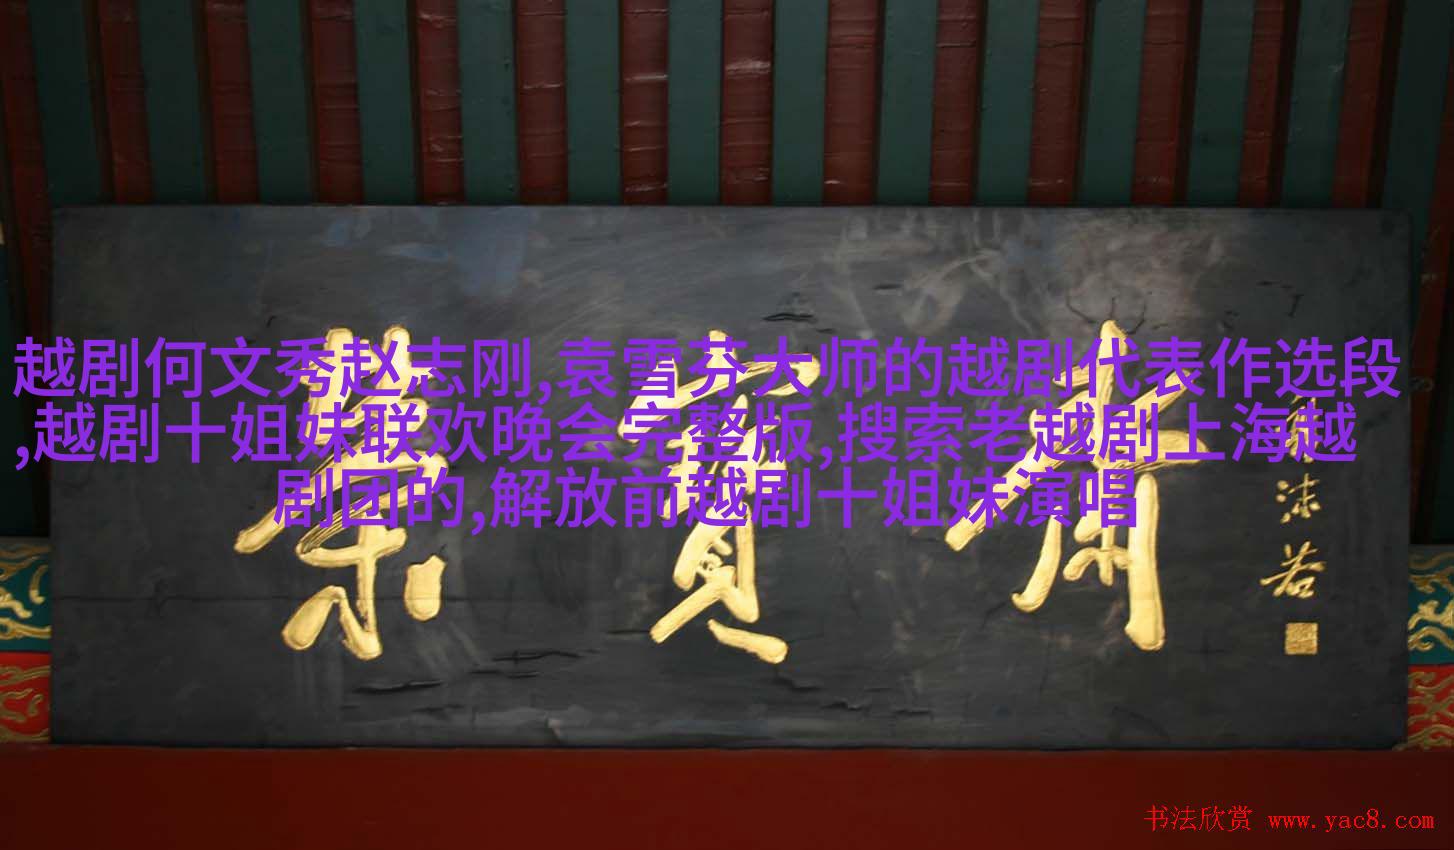 越剧何文秀赵志刚,袁雪芬大师的越剧代表作选段
,越剧十姐妹联欢晚会完整版,搜索老越剧上海越
剧团的,解放前越剧十姐妹演唱
榮寶齋
沫若
书法欣赏 www.yac8.com